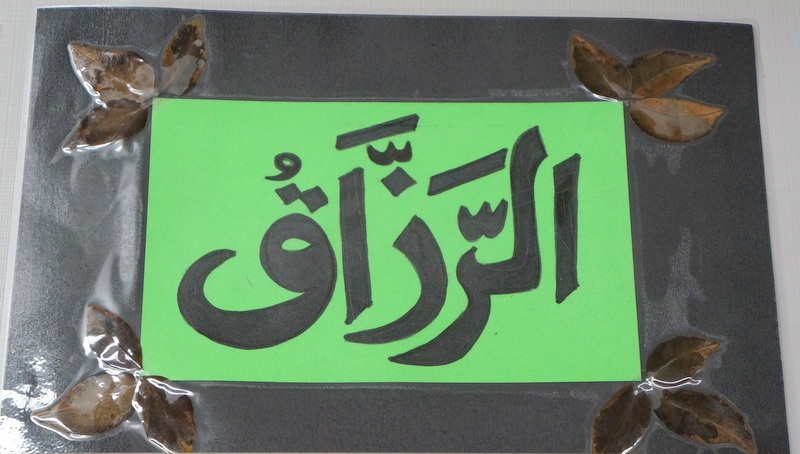 الرَّزَّاقُ